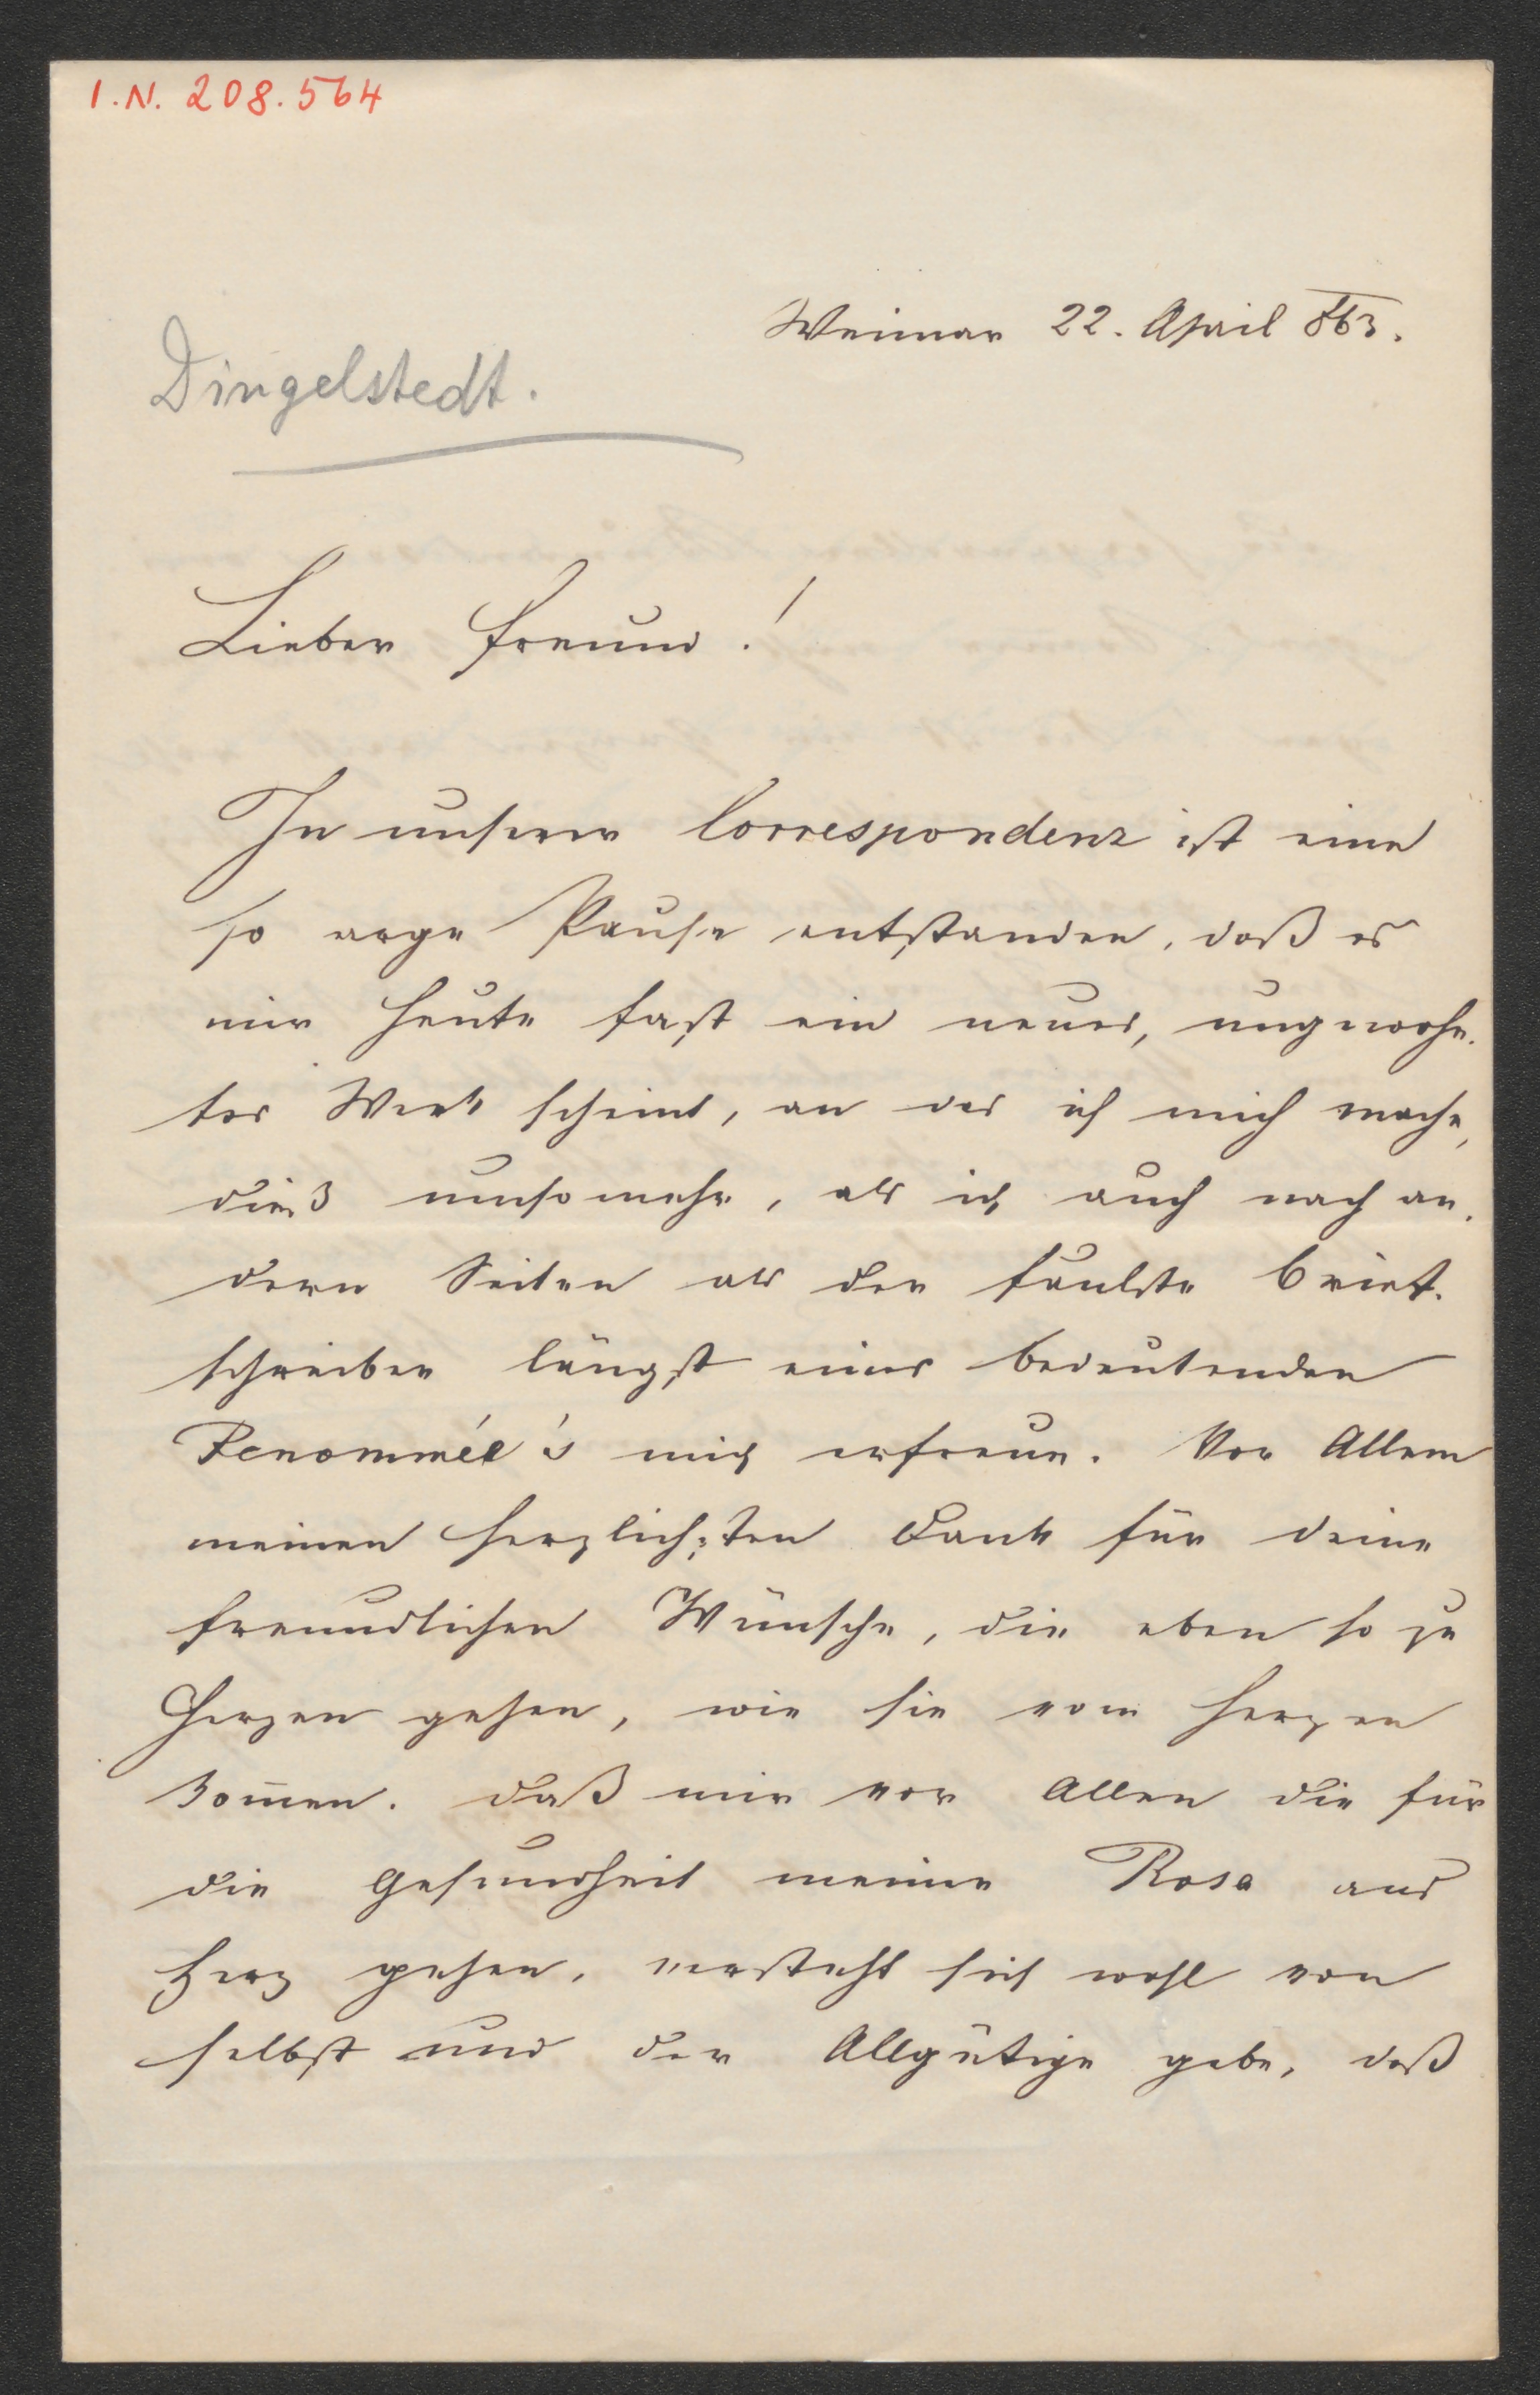 I.N. 208.564
Weimar 22. April 863.
Dingelstedt.
Lieber Freund!
In unserer Correspondenz ist eine
so arge Pause entstanden, daß es
mir heute fast ein neues, ungewohn-
tes Werk scheint, an das ich mich mache,
dieß umsomehr, als ich auch nach an-
dern Seiten als der faulste Brief-
schreiber längst eines bedeutenden
Renommée's mich erfreue. Vor Allem
meinen herzlichsten Dank für deine
freundlichen Wünsche, die eben so zu
Herzen gehen, wie sie vom Herzen
kom̄en. Daß mir vor Allen die für
die Gesundheit meiner Rosa ans
Herz gehen, versteht sich wohl von
selbst und der Allgütige gebe, daß